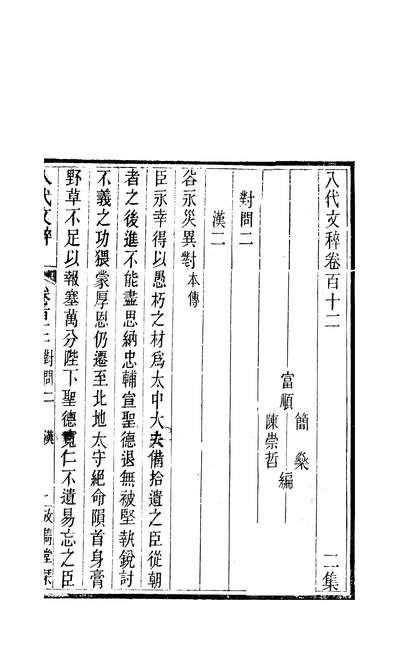 八代文稡卷百十二 二集
富順 簡燊 陳崇哲 編
對問二
漢二
谷永災異對本傳
臣永幸得以愚朽之材爲太中大夫備拾遺之臣從朝
者之後進不能盡思納忠輔宣聖德退無被堅執銳討
不義之功猥蒙厚恩仍遷至北地太守絕命隕首身膏
野草不足以報塞萬分陛下聖德寬仁不遺易忘之臣
八代文稡 對問二 漢